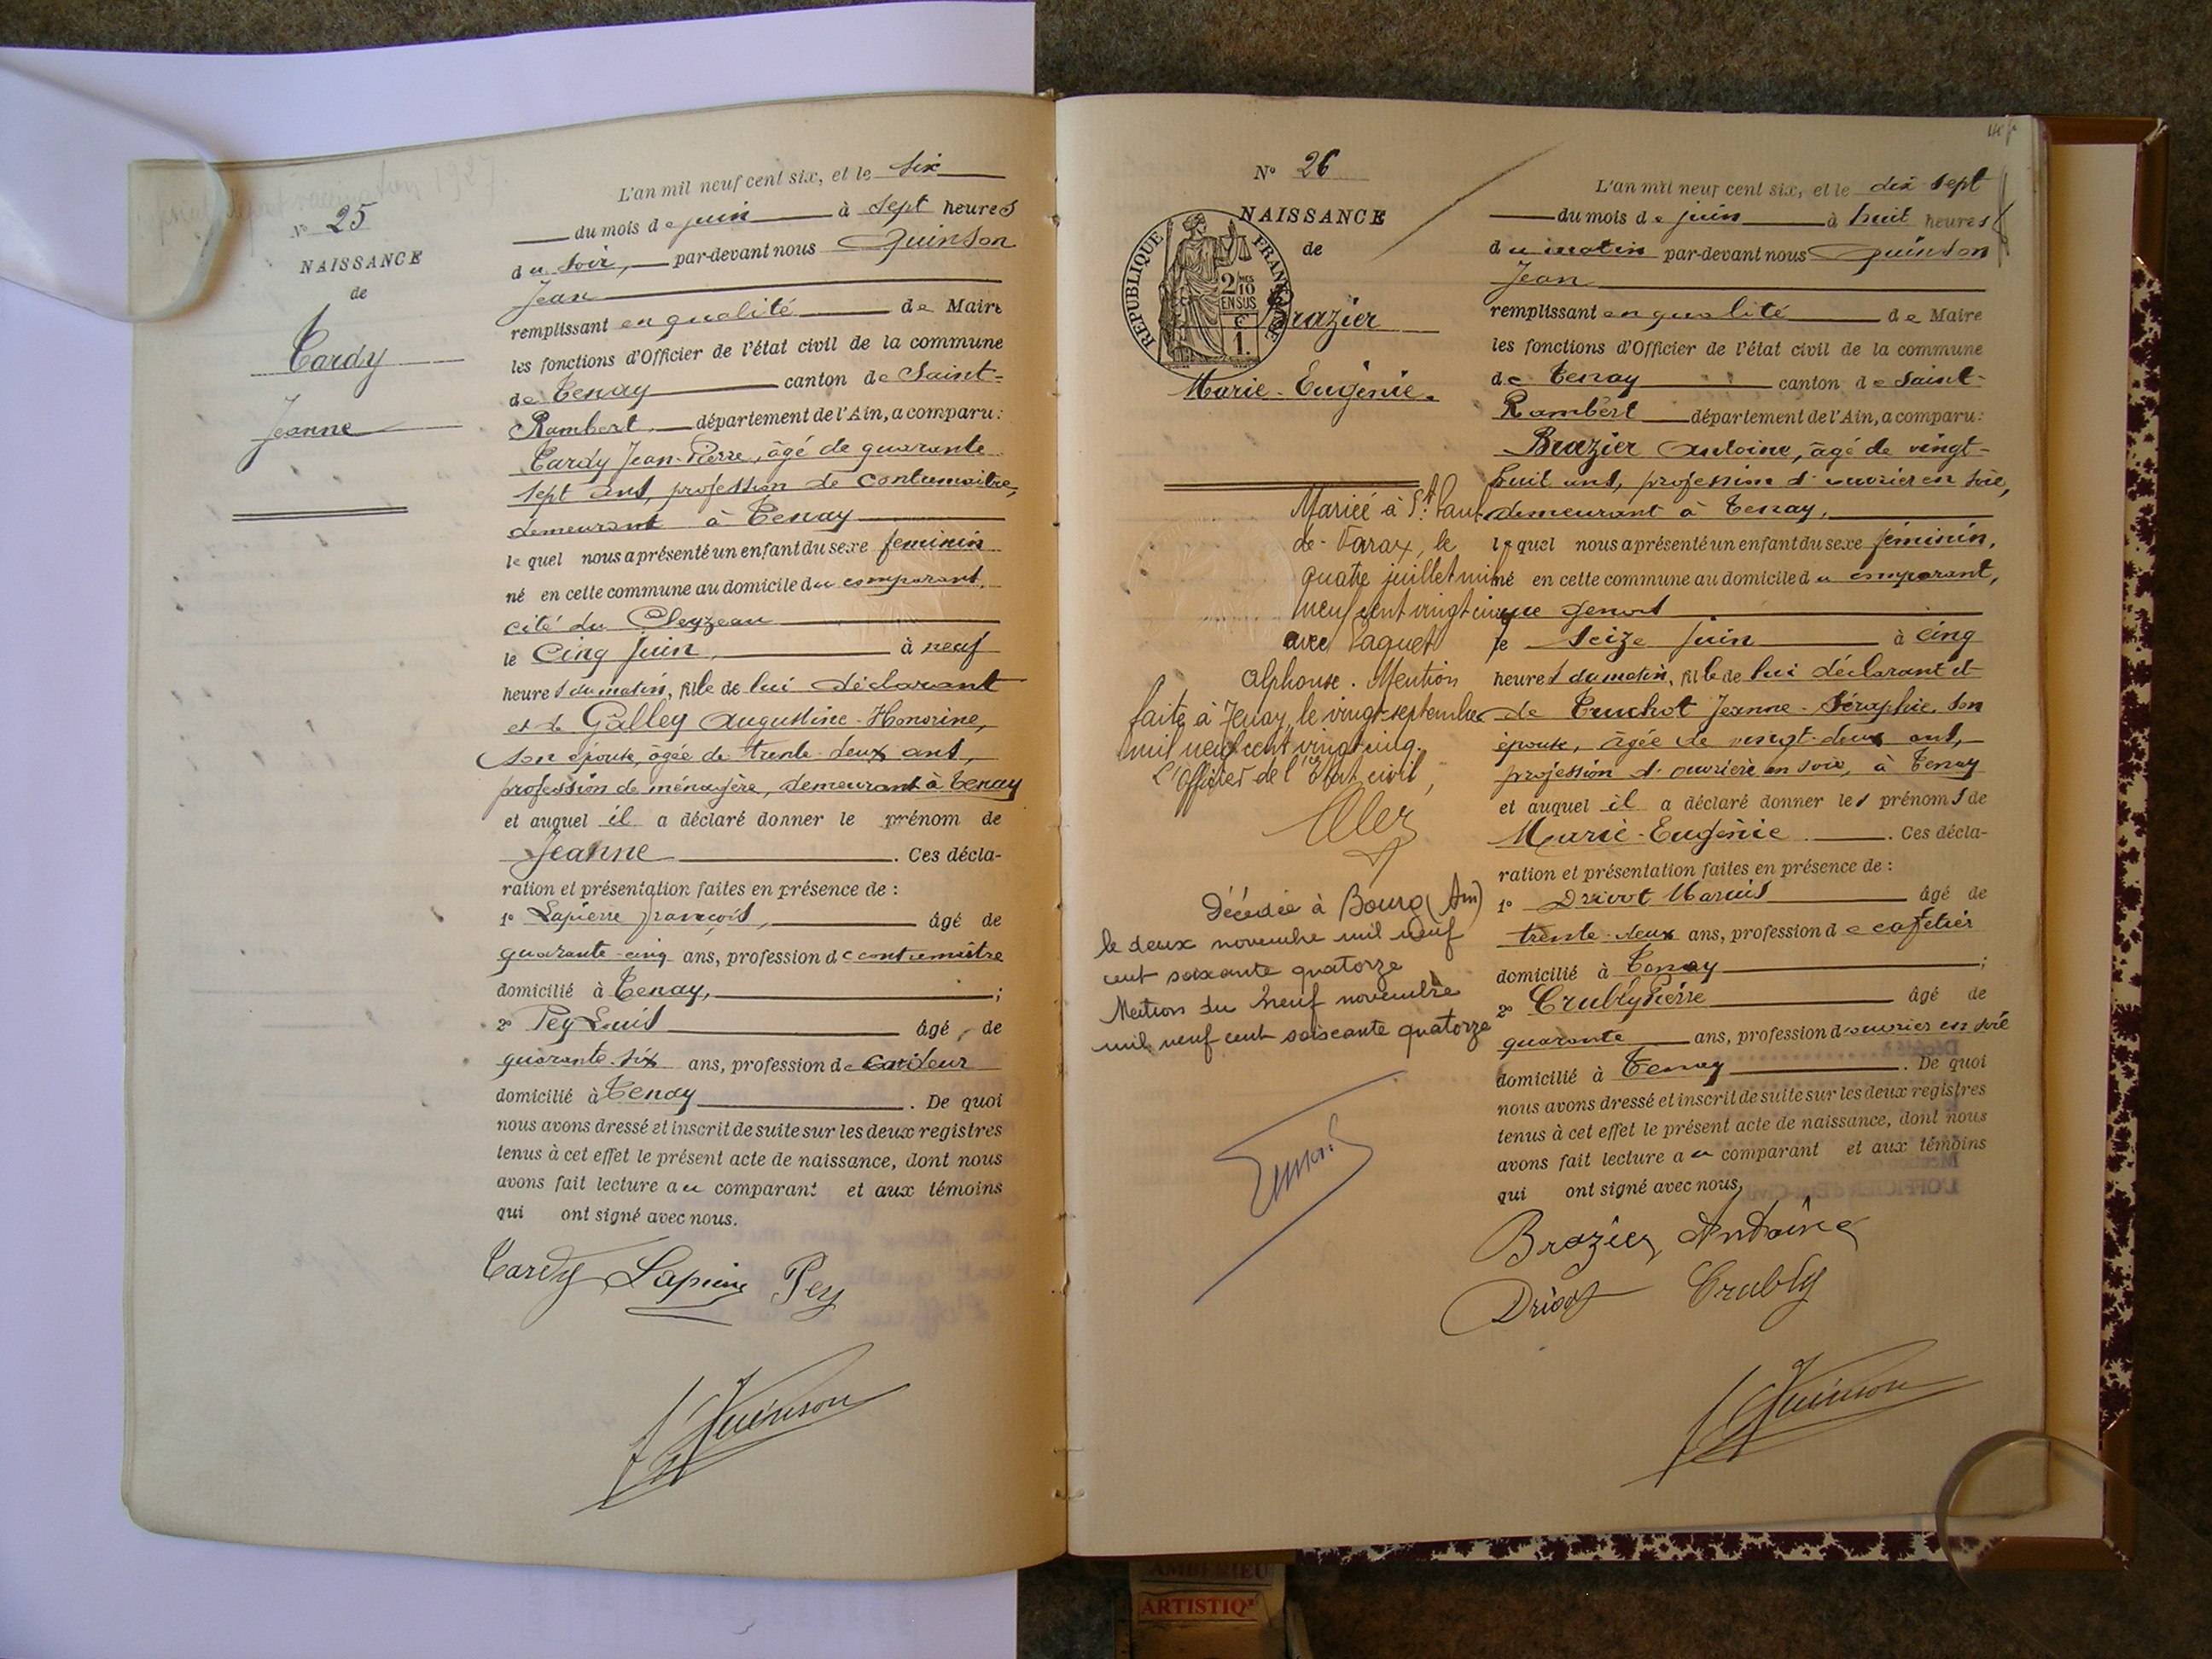 N° 25
NAISSANCE
de
Tardy
Jeanne
L'an mil neuf cent six, et le six
du mois de juin à sept heures
du soir, par-devant nous Quinson
Jean
remplissant en qualité de Maire
les fonctions d'Officier de l'état civil de la commune
de Tenay canton de Saint-
Rambert département de l'Ain, a comparu :
Tardy Jean-Pierre, âgé de quarante
sept ans, profession de contumaitre,
demeurant à Tenay
le quel nous a présenté un enfant du sexe feminin
né en cette commune au domicile du comparant,
cité du Cleyzeau
le Cinq juin, à neuf
heures du matin, fille de lui déclarant
et de Galley Augustine-Honorine,
son épouse, âgée de trente deux ans,
profession de ménagère, demeurant à Tenay
et auquel il a déclaré donner le prénom de
Jeanne . Ces décla-
ration et présentation faites en présence de :
1° Lapierre françois, âgé de
quarante-cinq ans, profession de contremaître
domicilié à Tenay, ;
2° Pey Louis âgé de
quarante-six ans, profession de cardeur
domicilié à Tenay . De quoi
nous avons dressé et inscrit de suite sur les deux registres
tenus à cet effet le présent acte de naissance, dont nous
avons fait lecture au comparant et aux témoins
qui ont signé avec nous.
Tardy Lapierre Pey
Quinson
N° 26
NAISSANCE
de
REPUBLIQUE FRANÇAISE
2/10 EN SUS
1.
Brazier
Marie-Eugénie.
Mariée à St. Paul
de-Varax, le
quatre juillet mil
neuf cent vingt cinq
avec Paquet
Alphonse. Mention
faite à Tenay, le vingt septembre
mil neuf cent vingt cinq.
L'Officier de l'Etat civil,
Décédée à Bourg (Ain)
le deux novembre mil neuf
cent soixante quatorze
Mention du neuf novembre
mil neuf cent soixante quatorze
L'an mil neuf cent six, et le dix sept
du mois de juin à huit heures
du matin par-devant nous Quinson
Jean
remplissant en qualité de Maire
les fonctions d'Officier de l'état civil de la commune
de Tenay canton de Saint-
Rambert département de l'Ain, a comparu :
Brazier Antoine, âgé de vingt-
huit ans, profession d'ouvrier en soie,
demeurant à Tenay,
le quel nous a présenté un enfant du sexe féminin,
né en cette commune au domicile du comparant,
le Seize juin à cinq
heures du matin, fille de lui déclarant et
de Truchot Jeanne-Séraphie, son
épouse, âgée de vingt-deux ans,
profession d'ouvrière en soie, à Tenay
et auquel il a déclaré donner les prénoms de
Marie-Eugénie . Ces décla-
ration et présentation faites en présence de :
1° Drivot Marius âgé de
trente-deux ans, profession de cafetier
domicilié à Tenay ;
2° Crubly Pierre âgé de
quarante ans, profession d'ouvrier en soie
domicilié à Tenay . De quoi
nous avons dressé et inscrit de suite sur les deux registres
tenus à cet effet le présent acte de naissance, dont nous
avons fait lecture au comparant et aux témoins
qui ont signé avec nous,
Brazier Antoine
Drivot Crubly
Quinson
AMBERIEU
ARTISTIQ